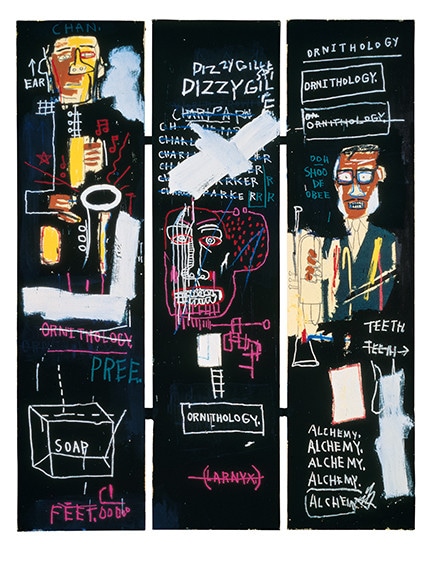 CHAN.
EAR
ORNITHOLOGY
PREE.
SOAP
FEET.
DIZZYGILLE
DIZZYGIL
CH
CHAR
CHARL
CHARL
PARKER
PARKER
ORNITHOLOGY.
(LARNYX)
ORNITHOLOGY
ORNITHOLOGY.
ORNITHOLOGY.
OOH
SHOO
DE
OBEE
TEETH
TEETH→
ALCHEMY.
ALCHEMY.
ALCHEMY.
ALCHEMY.
ALCHEMY